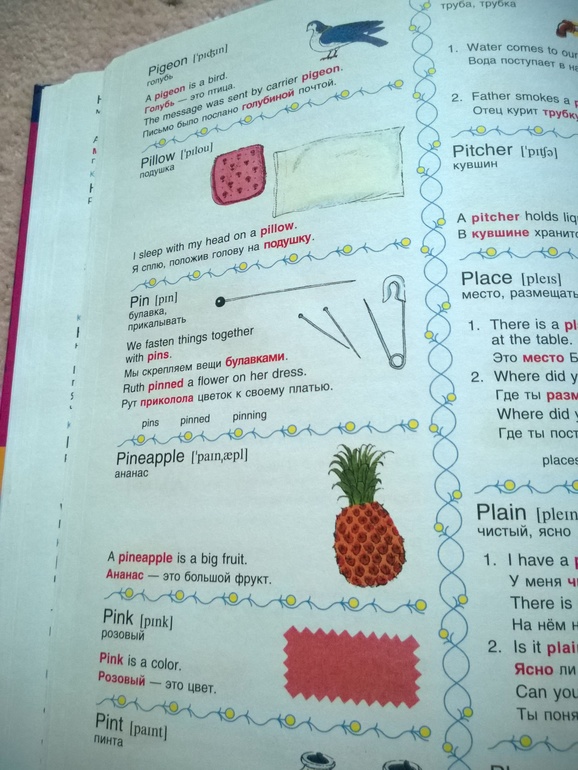 Pigeon ['pɪdʒɪn]
голубь
A pigeon is a bird.
Голубь — это птица.
The message was sent by carrier pigeon.
Письмо было послано голубиной почтой.
Pillow ['pɪlou]
подушка
I sleep with my head on a pillow.
Я сплю, положив голову на подушку.
Pin [pɪn]
булавка,
прикалывать
We fasten things together
with pins.
Мы скрепляем вещи булавками.
Ruth pinned a flower on her dress.
Рут приколола цветок к своему платью.
pins pinned pinning
Pineapple ['paɪnˌæpl]
ананас
A pineapple is a big fruit.
Ананас — это большой фрукт.
Pink [pɪnk]
розовый
Pink is a color.
Розовый — это цвет.
Pint [paɪnt]
пинта
труба, трубка
1. Water comes to
Вода поступает в
2. Father smokes a
Отец курит
Pitcher ['pɪtʃə]
кувшин
A pitcher holds
В кувшине
Place [pleɪs]
место, размещать
1. There is a
at the table.
Это место
2. Where did
Где ты
Where did
Где ты
places
Plain [pleɪn]
чистый, ясно
1. I have a
У меня
There is
На нём
2. Is it
Ясно ли
Can you
Ты